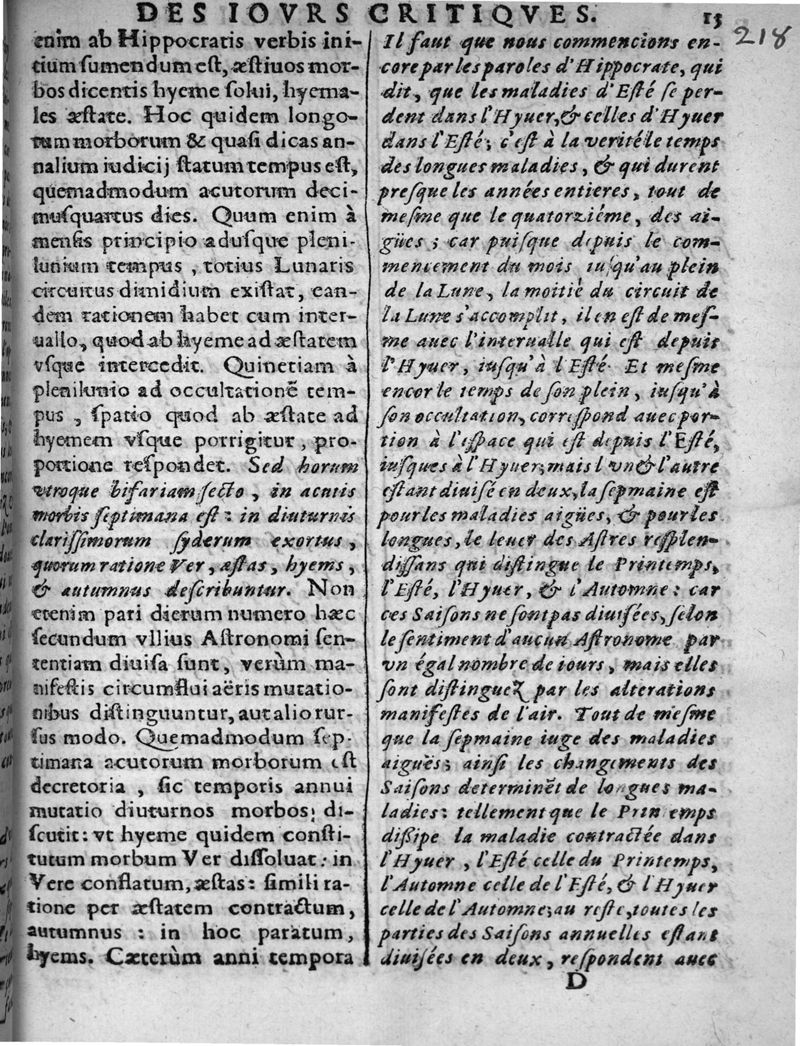 DES IOVRS CRITIQVES. 15
218
enim ab Hippocratis verbis ini-
tium ſumendum eſt, æſtiuos mor-
bos dicentis hyeme ſolui, hyema-
les æſtate. Hoc quidem longo-
rum morborum & quaſi dicas an-
nalium iudicij ſtatum tempus eſt,
quemadmodum acutorum deci-
muſquartus dies. Quum enim à
menſis principio aduſque pleni-
lunium tempus, totius Lunaris
circuitus dimidium exiſtat, ean-
dem rationem habet cum inter-
uallo, quod ab hyeme ad æſtatem
vſque intercedit. Quinetiam à
plenilunio ad occultationē tem-
pus, ſpatio quod ab æſtate ad
hyemem vſque porrigitur, pro-
portione reſpondet. Sed horum
vtroque bifariam ſecto, in acutis
morbis ſeptimana eſt: in diuturnis
clariſſimorum ſyderum exortus,
quorum ratione Ver, æſtas, hyems,
& autumnus deſcribuntur. Non
etenim pari dierum numero hæc
ſecundum vllius Aſtronomi ſen-
tentiam diuiſa ſunt, verùm ma-
nifeſtis circumflui aëris mutatio-
nibus diſtinguuntur, aut alio rur-
ſus modo. Quemadmodum ſep-
timana acutorum morborum eſt
decretoria, ſic temporis annui
mutatio diuturnos morbos; di-
ſcutit: vt hyeme quidem conſti-
tutum morbum Ver diſſoluat: in
Vere conflatum, æſtas: ſimili ra-
tione per æſtatem contractum,
autumnus: in hoc paratum,
hyems. Cæterùm anni tempora
Il faut que nous commencions en-
core par les paroles d'Hippocrate, qui
dit, que les maladies d'Eſté ſe per-
dent dans l'Hyuer, & celles d'Hyuer
dans l'Eſté; c'eſt à la verité le temps
des longues maladies, & qui durent
preſque les années entieres, tout de
meſme que le quatorziéme, des ai-
gües; car puiſque depuis le com-
mencement du mois iuſqu'au plein
de la Lune, la moitié du circuit de
la Lune s'accomplit, il en eſt de meſ-
me auec l'interualle qui eſt depuis
l'Hyuer, iuſqu'à l'Eſté. Et meſme
encor le temps de ſon plein, iuſqu'à
ſon occultation, correſpond auec por-
tion à l'eſpace qui eſt depuis l'Eſté,
iuſques à l'Hyuer; mais l'vn & l'autre
eſtant diuiſé en deux, la ſepmaine eſt
pour les maladies aigües, & pour les
longues, le leuer des Aſtres reſplen-
diſſans qui diſtingue le Printemps,
l'Eſté, l'Hyuer, & l'Automne: car
ces Saiſons ne ſont pas diuiſées, ſelon
le ſentiment d'aucun Aſtronome par
vn égal nombre de iours, mais elles
ſont diſtinguez par les alterations
manifeſtes de l'air. Tout de meſme
que la ſepmaine iuge des maladies
aiguës; ainſi les changements des
Saiſons determinēt de longues ma-
ladies: tellement que le Prin emps
diſſipe la maladie contractée dans
l'Hyuer, l'Eſté celle du Printemps,
l'Automne celle de l'Eſté, & l'Hyuer
celle de l'Automne; au reſte, toutes les
parties des Saiſons annuelles eſtant
diuiſées en deux, reſpondent auec
D